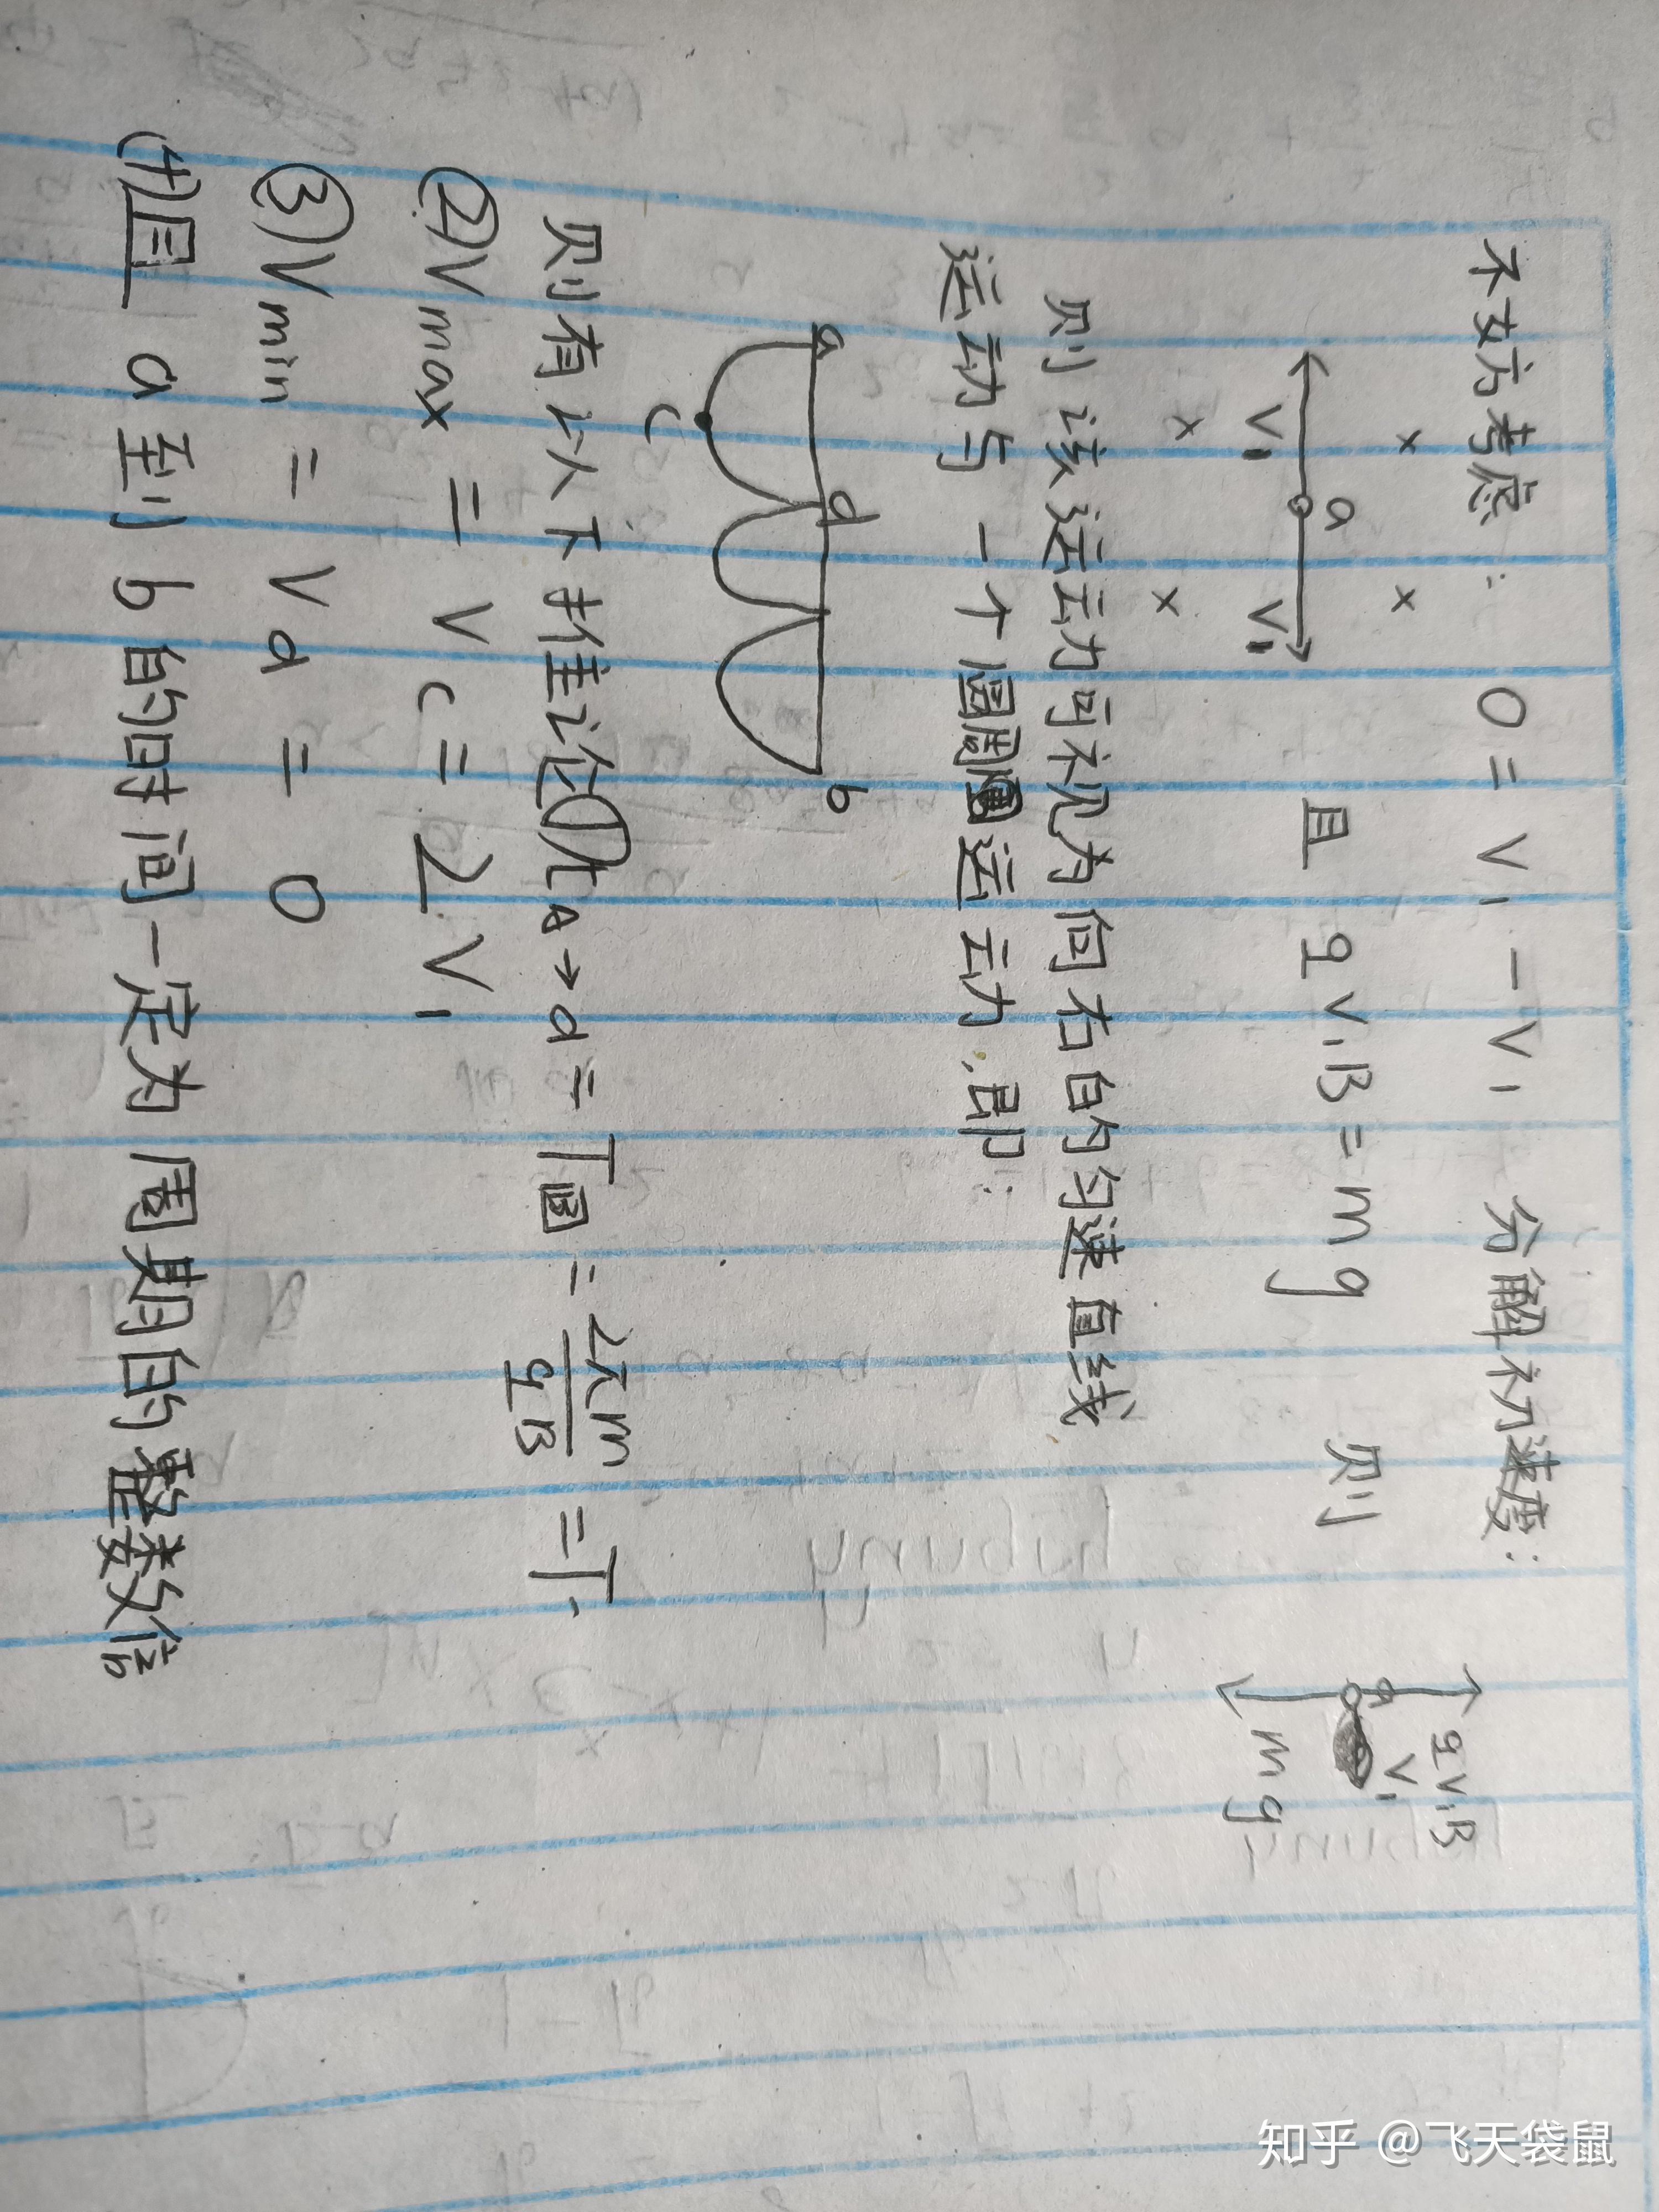 不妨考虑: 0 = v₁ - v₁ 分解初速度:
× ×
a
v₁ v₁
× ×
且 qv₁B = mg 则
qv₁B
a v₁
mg
则该运动可视为向右的匀速直线
运动与一个圆周运动,即:
a d b
c
则有以下推论①t A→d = T圆 = 2πm/qB = T.
② Vmax = Vc = 2V₁
③ Vmin = Vd = 0
(4)且 a到b的时间一定为周期的整数倍
知乎 @飞天袋鼠